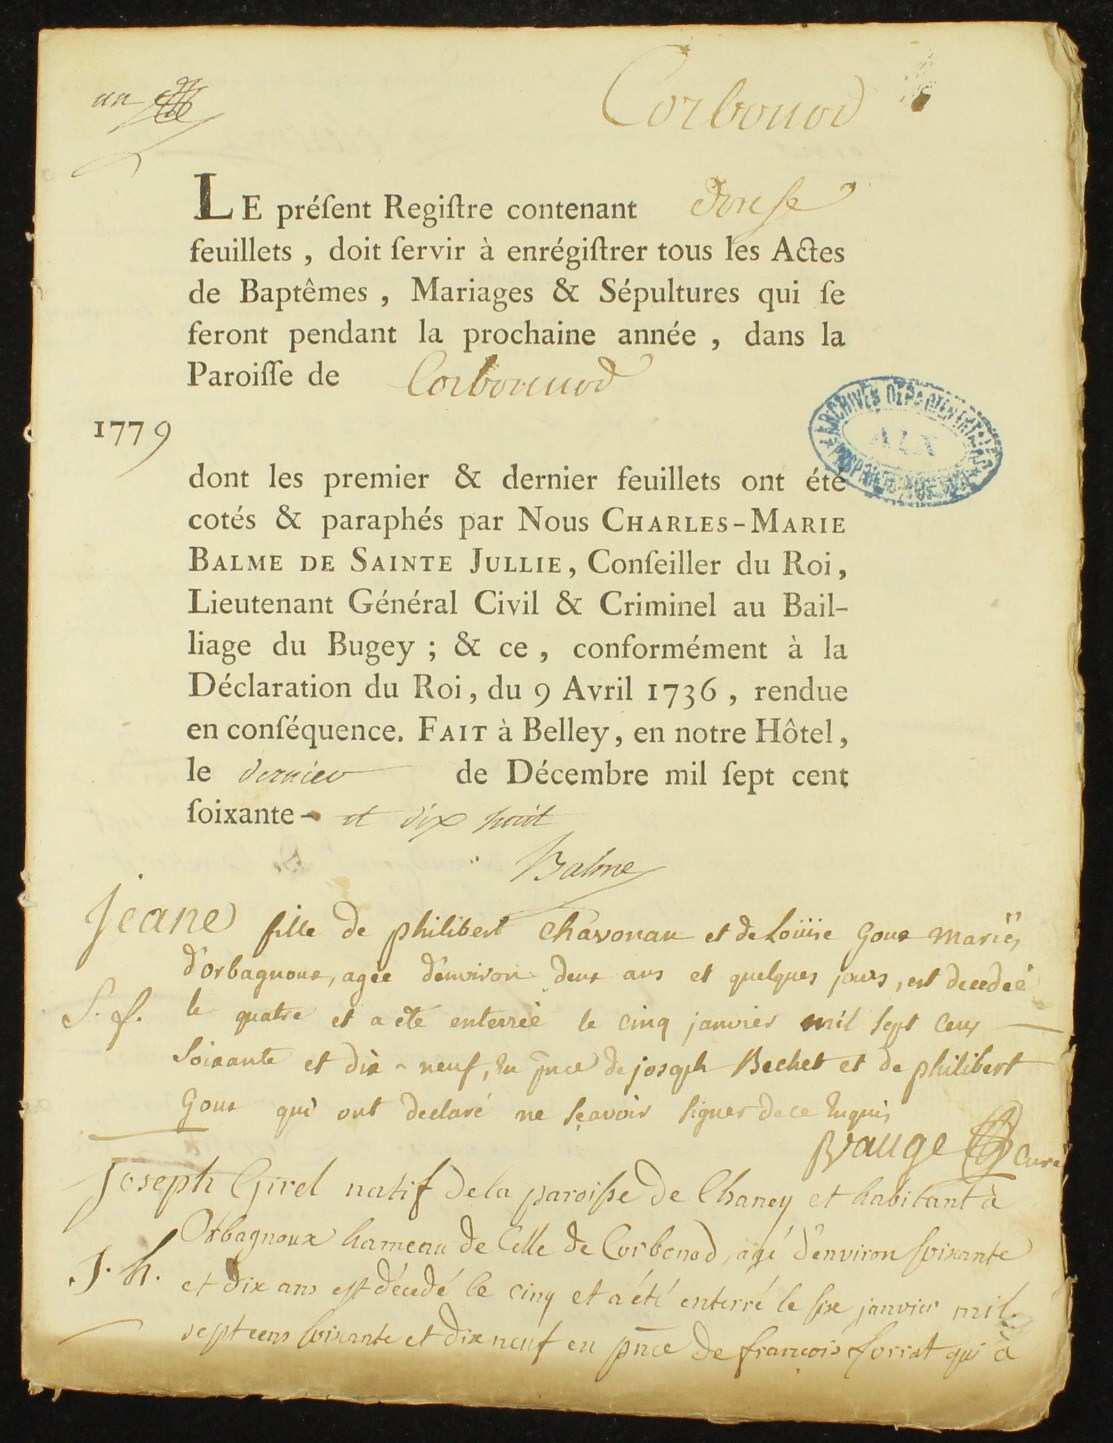 un
Corbonod
LE préſent Regiſtre contenant douſe
feuillets , doit ſervir à enrégiſtrer tous les Actes
de Baptêmes , Mariages & Sépultures qui ſe
feront pendant la prochaine année , dans la
Paroiſſe de Corbonnod
1779
ARCHIVES DÉPARTEMENTALES
AIN
dont les premier & dernier feuillets ont été
cotés & paraphés par Nous CHARLES-MARIE
BALME DE SAINTE JULLIE, Conſeiller du Roi,
Lieutenant Général Civil & Criminel au Bail-
liage du Bugey ; & ce , conformément à la
Déclaration du Roi, du 9 Avril 1736 , rendue
en conſéquence. FAIT à Belley, en notre Hôtel,
le dernier de Décembre mil ſept cent
ſoixante - et dix huit
Balme
Jeane fille de philibert Chavonau et de Loüise Goux mariés
d'orbagnoux, agée d'environ deux ans et quelques jours, est decedeé
S. f. le quatre et a eté enterreé le cinq janvier mil sept cens
soixante et dix - neuf, en pnce de joseph Bechet et de philibert
Goux qui ont declaré ne sçavoir signer de ce enquis
Vauge curé
Joseph Girel natif de la paroisse de Chaney et habitant à
Orbagnoux hameau de Celle de Corbonod, agé d'environ soixante
S. h. et dix ans est décedé le cinq et a été enterré le six janvier mil
sept cens soixante et dix neuf en pnce de françois forrat qui a